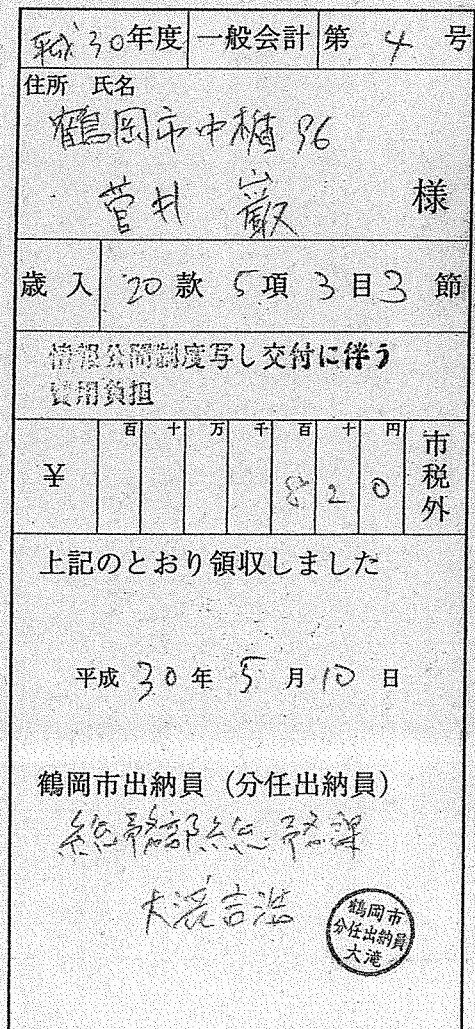 平成30年度 一般会計 第 4 号
住所 氏名
鶴岡市中楯96
菅井 巌 様
歳入 20款 5項 3目 3節
情報公開制度写し交付に伴う
費用負担
百 十 万 千 百 十 円
¥ 8 2 0 市税外
上記のとおり領収しました
平成 30年 5月 10日
鶴岡市出納員(分任出納員)
総務部総務課
大滝吉浩
鶴岡市
分任出納員
大滝